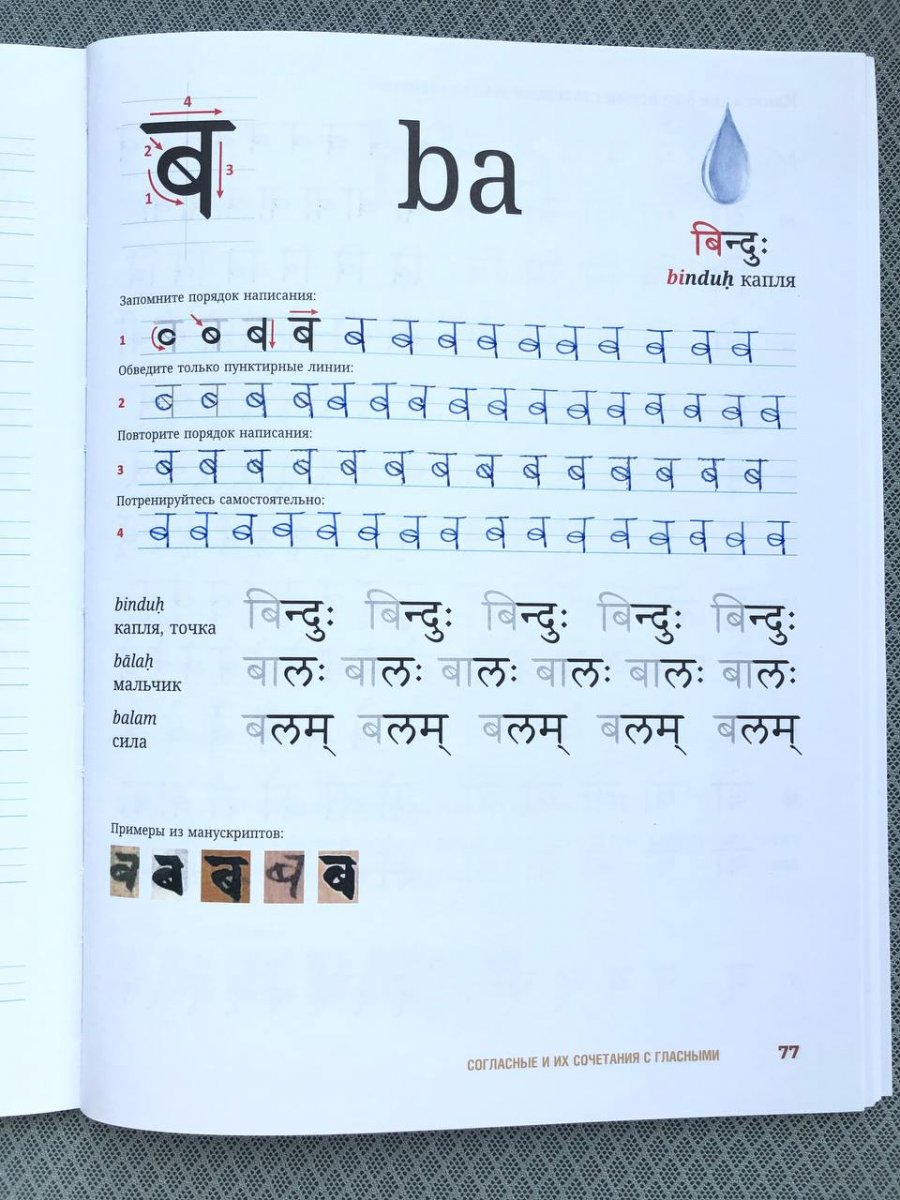 4
2
3
1
ब
ba
बिन्दुः
binduḥ капля
Запомните порядок написания:
1 ब ब ब ब ब ब ब ब ब ब ब ब ब
Обведите только пунктирные линии:
2 ब ब ब ब ब ब ब ब ब ब ब ब ब ब ब
Повторите порядок написания:
3 ब ब ब ब ब ब ब ब ब ब ब ब ब ब
Потренируйтесь самостоятельно:
4 ब ब ब ब ब ब ब ब ब ब ब ब ब ब ब ब
binduḥ
капля, точка
बिन्दुः बिन्दुः बिन्दुः बिन्दुः बिन्दुः
bālaḥ
мальчик
बालः बालः बालः बालः बालः बालः
balam
сила
बलम् बलम् बलम् बलम् बलम्
Примеры из манускриптов:
ब ब ब ब ब
СОГЛАСНЫЕ И ИХ СОЧЕТАНИЯ С ГЛАСНЫМИ 77